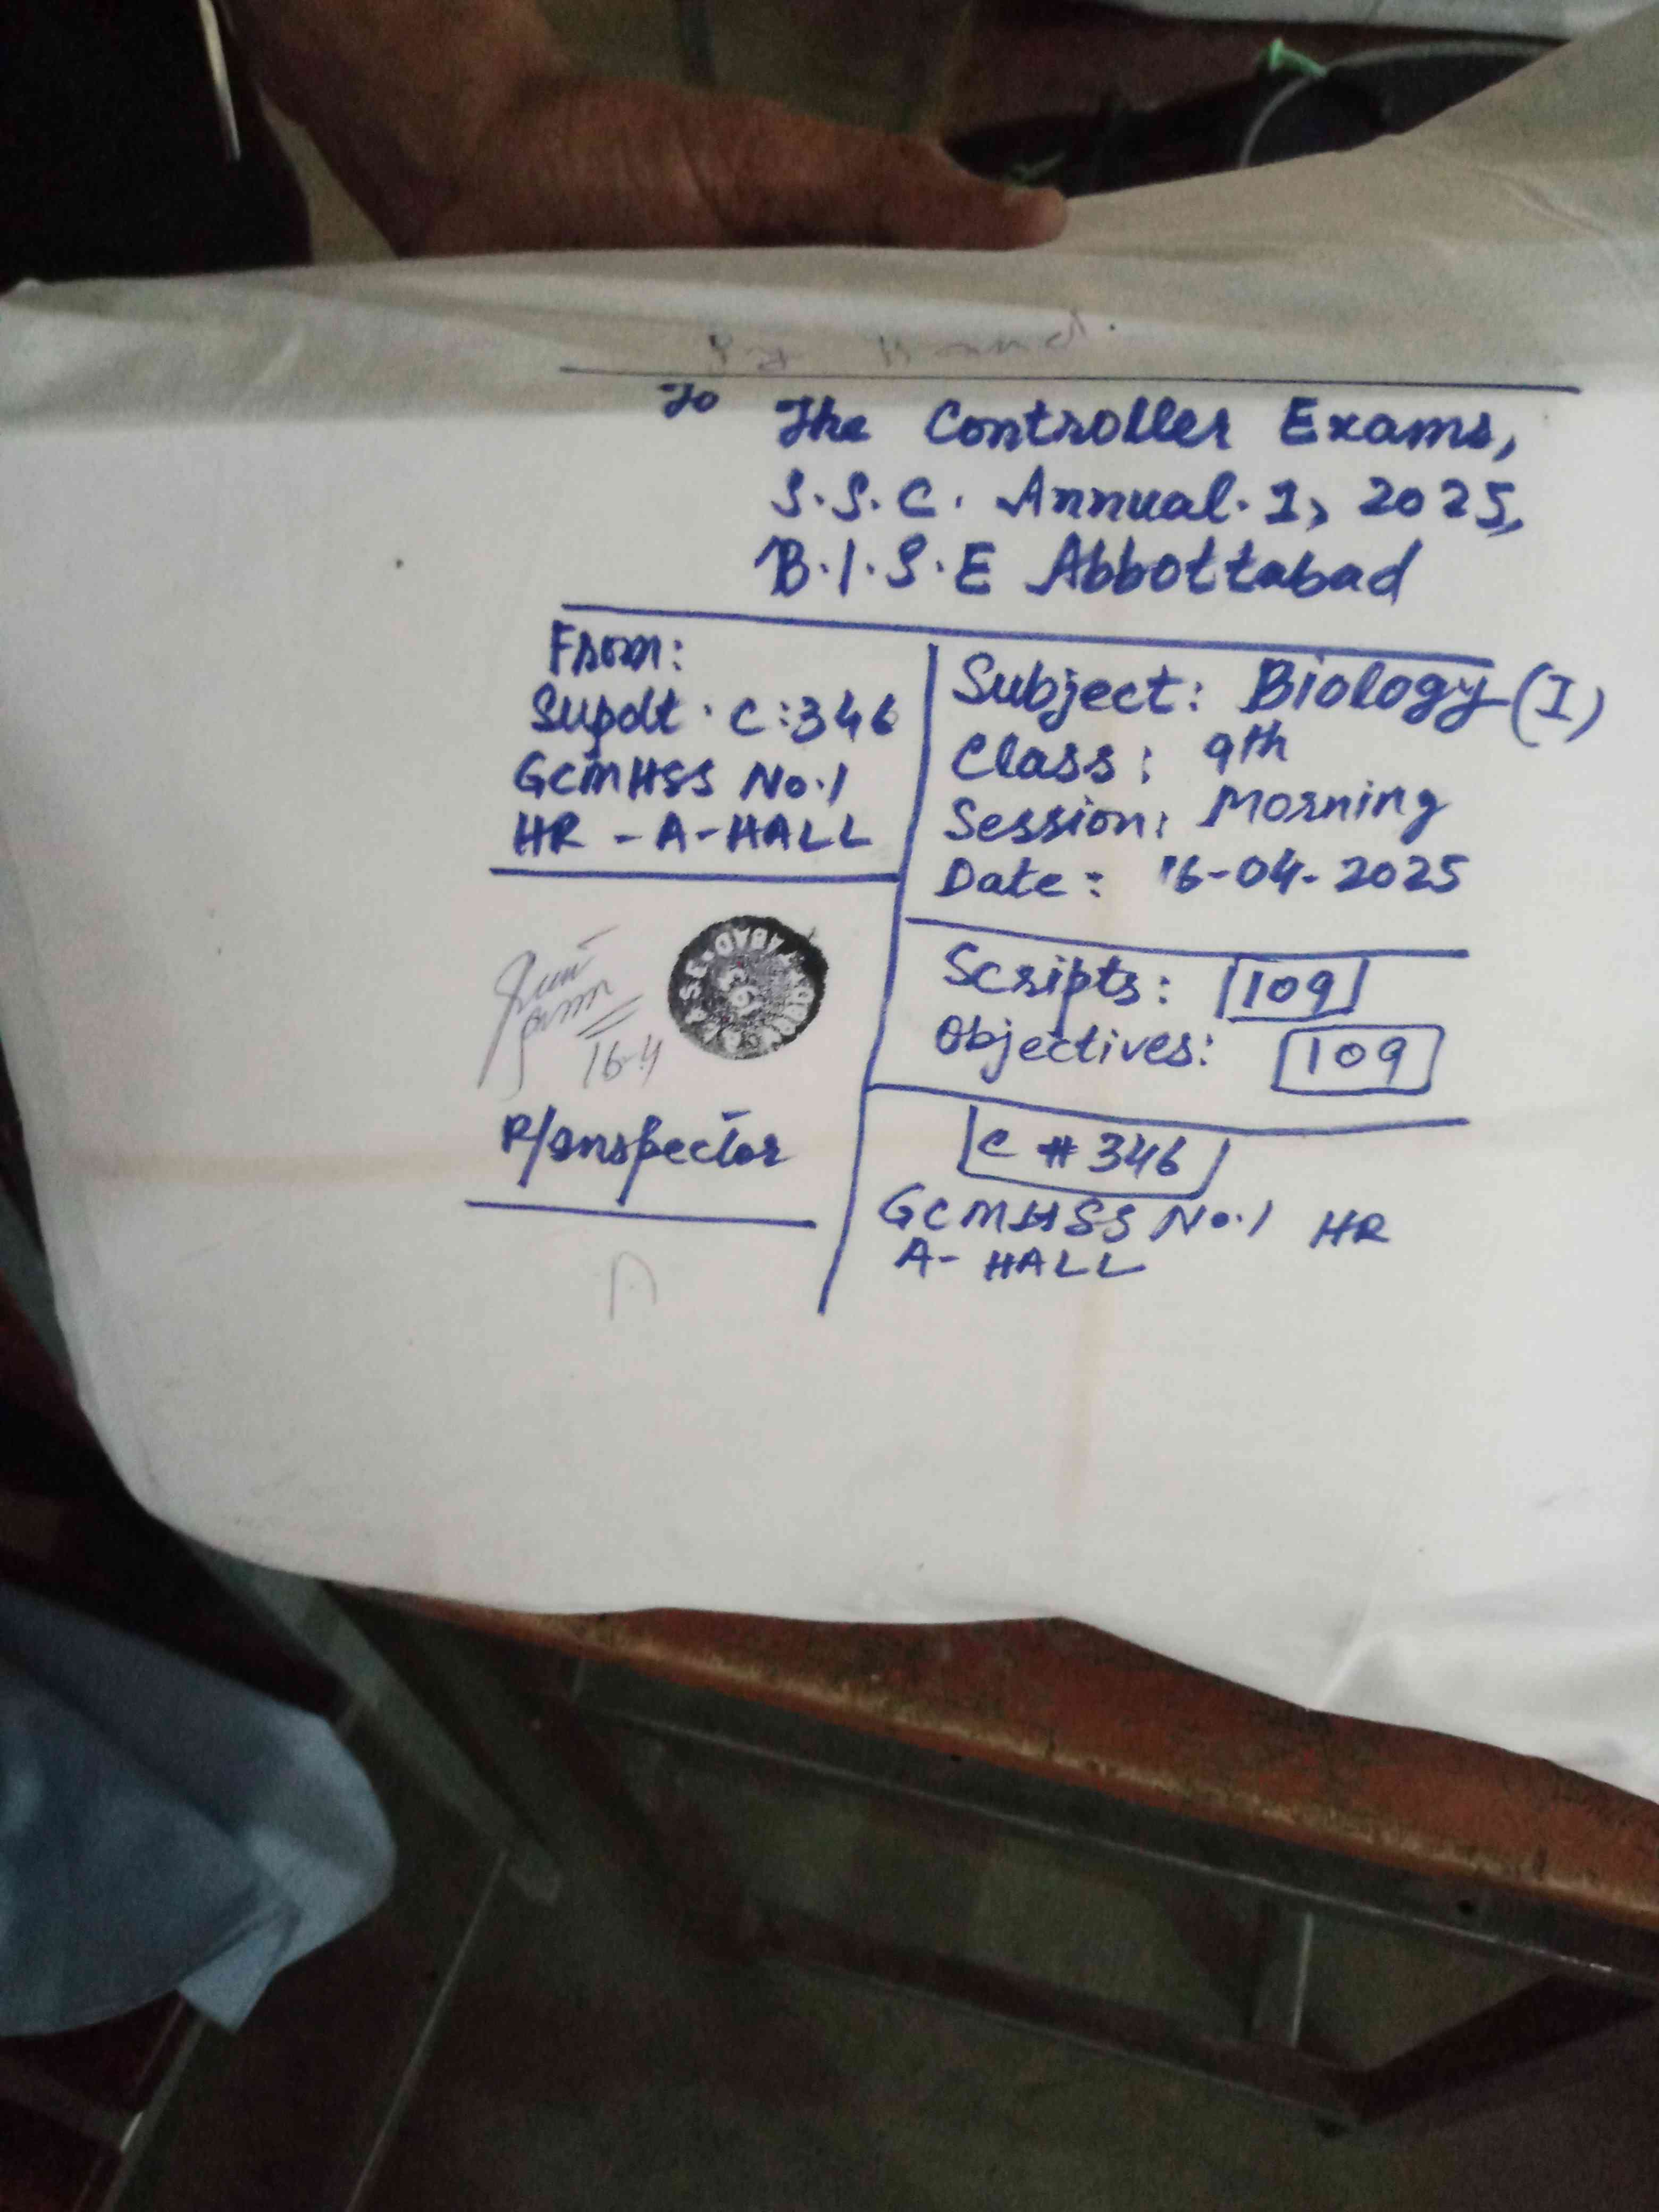 By Hand.
To The Controller Exams,
S.S.C. Annual.I, 2025,
B.I.S.E Abbottabad
From:
Supdt. C:346
GCMHSS No.1
HR - A-HALL
Subject: Biology (I)
Class: 9th
Session: Morning
Date: 16-04-2025
Scripts: 109
Objectives: 109
16-4
R/Inspector
C # 346
GCMHSS No.1 HR
A- HALL